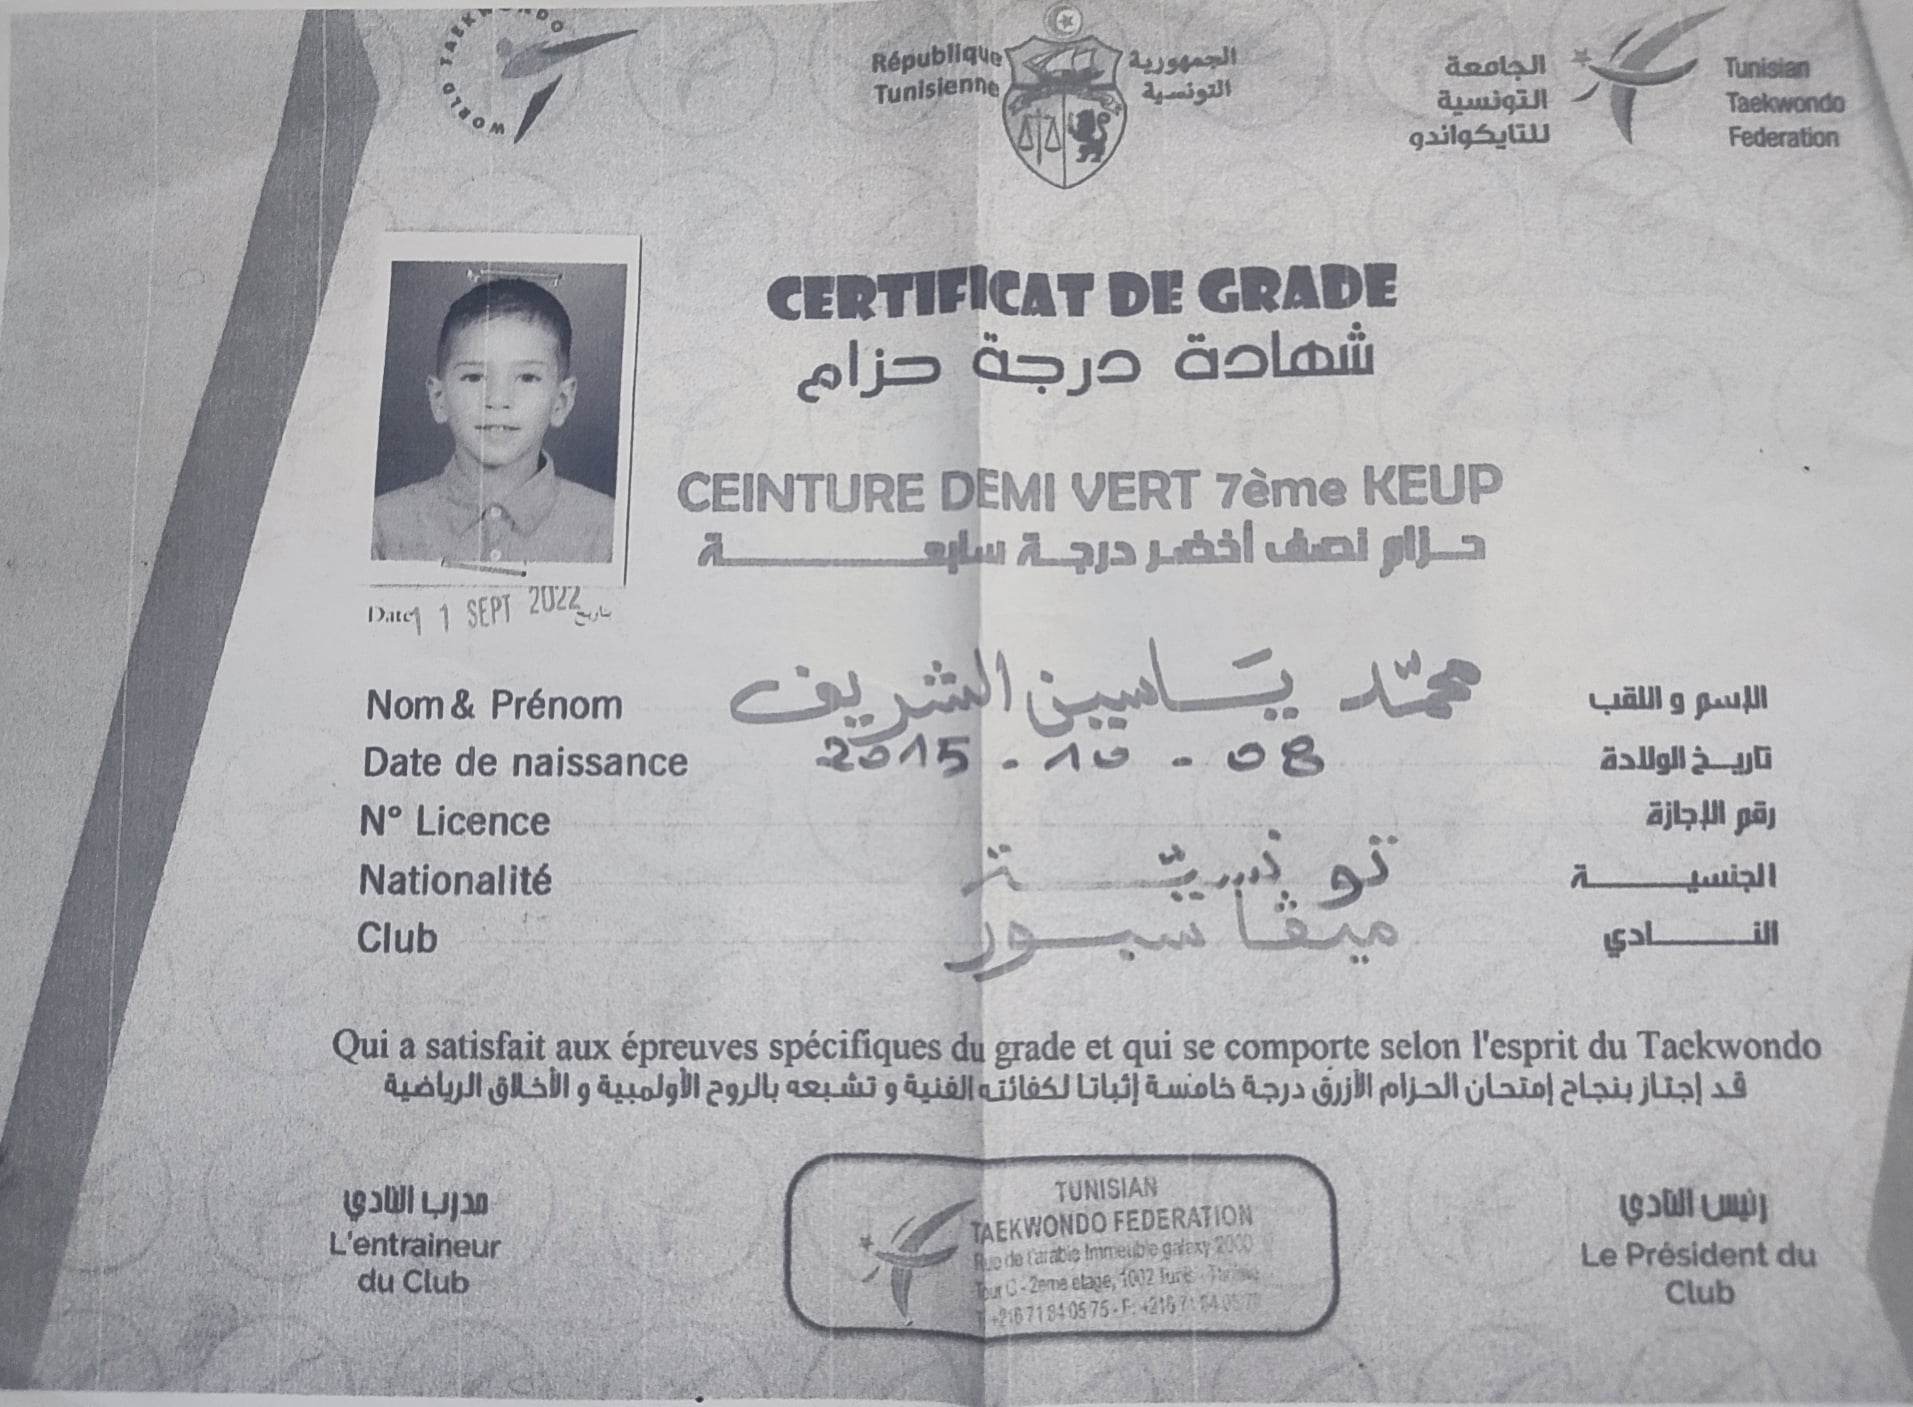 WORLD TAEKWONDO
République
Tunisienne
الجمهورية
التونسية
الجامعة
التونسية
للتايكواندو
Tunisian
Taekwondo
Federation
CERTIFICAT DE GRADE
شهادة درجة حزام
CEINTURE DEMI VERT 7ème KEUP
حزام نصف أخضر درجة سابعة
Date 1 1 SEPT 2022 تاريخ
Nom & Prénom محمّد يَاسين الشريف الإسم و اللقب
Date de naissance 2015 - 10 - 08 تاريخ الولادة
N° Licence رقم الإجازة
Nationalité تونسيّة الجنسية
Club ميڤا سبور النادي
Qui a satisfait aux épreuves spécifiques du grade et qui se comporte selon l'esprit du Taekwondo
قد إجتاز بنجاح إمتحان الحزام الأزرق درجة خامسة إثباتا لكفائته الفنية و تشبعه بالروح الأولمبية و الأخلاق الرياضية
مدرب النادي
L'entraineur
du Club
TUNISIAN
TAEKWONDO FEDERATION
Rue de l'arabie Immeuble galaxy 2000
Tour C - 2eme etage, 1002 Tunis - Tunisie
+216 71 84 05 75 - F: +216 71 84 05
رئيس النادي
Le Président du
Club